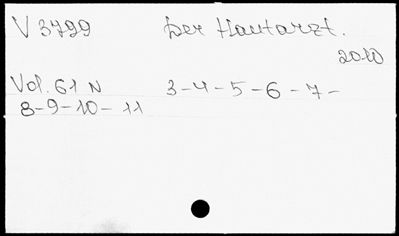 V 3799 Der Hautarzt.
2010
Vol. 61 N 3-4-5-6-7-
8-9-10-11